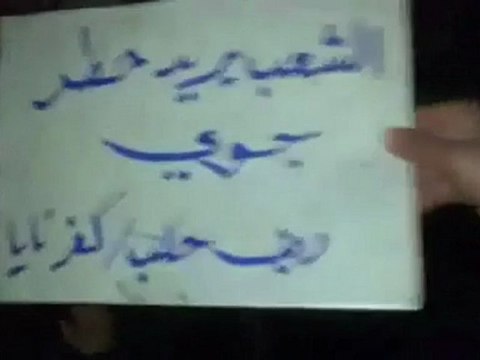 الشعب يريد حظر
جوي
ريف حلب / كفرنايا